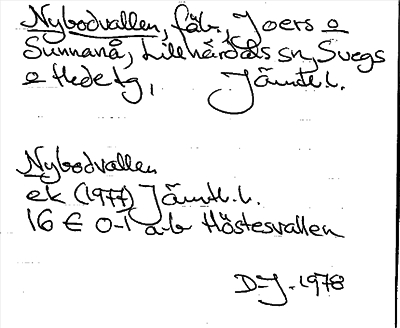 Nybodvallen, fäb., Joers o
Sunnanå, Lillhärdals sn, Svegs
o Hede tg, Jämtl.l.
Nybodvallen
ek (1977) Jämtl.l.
16 E 0-1 a-b Höstesvallen
D-J. 1978